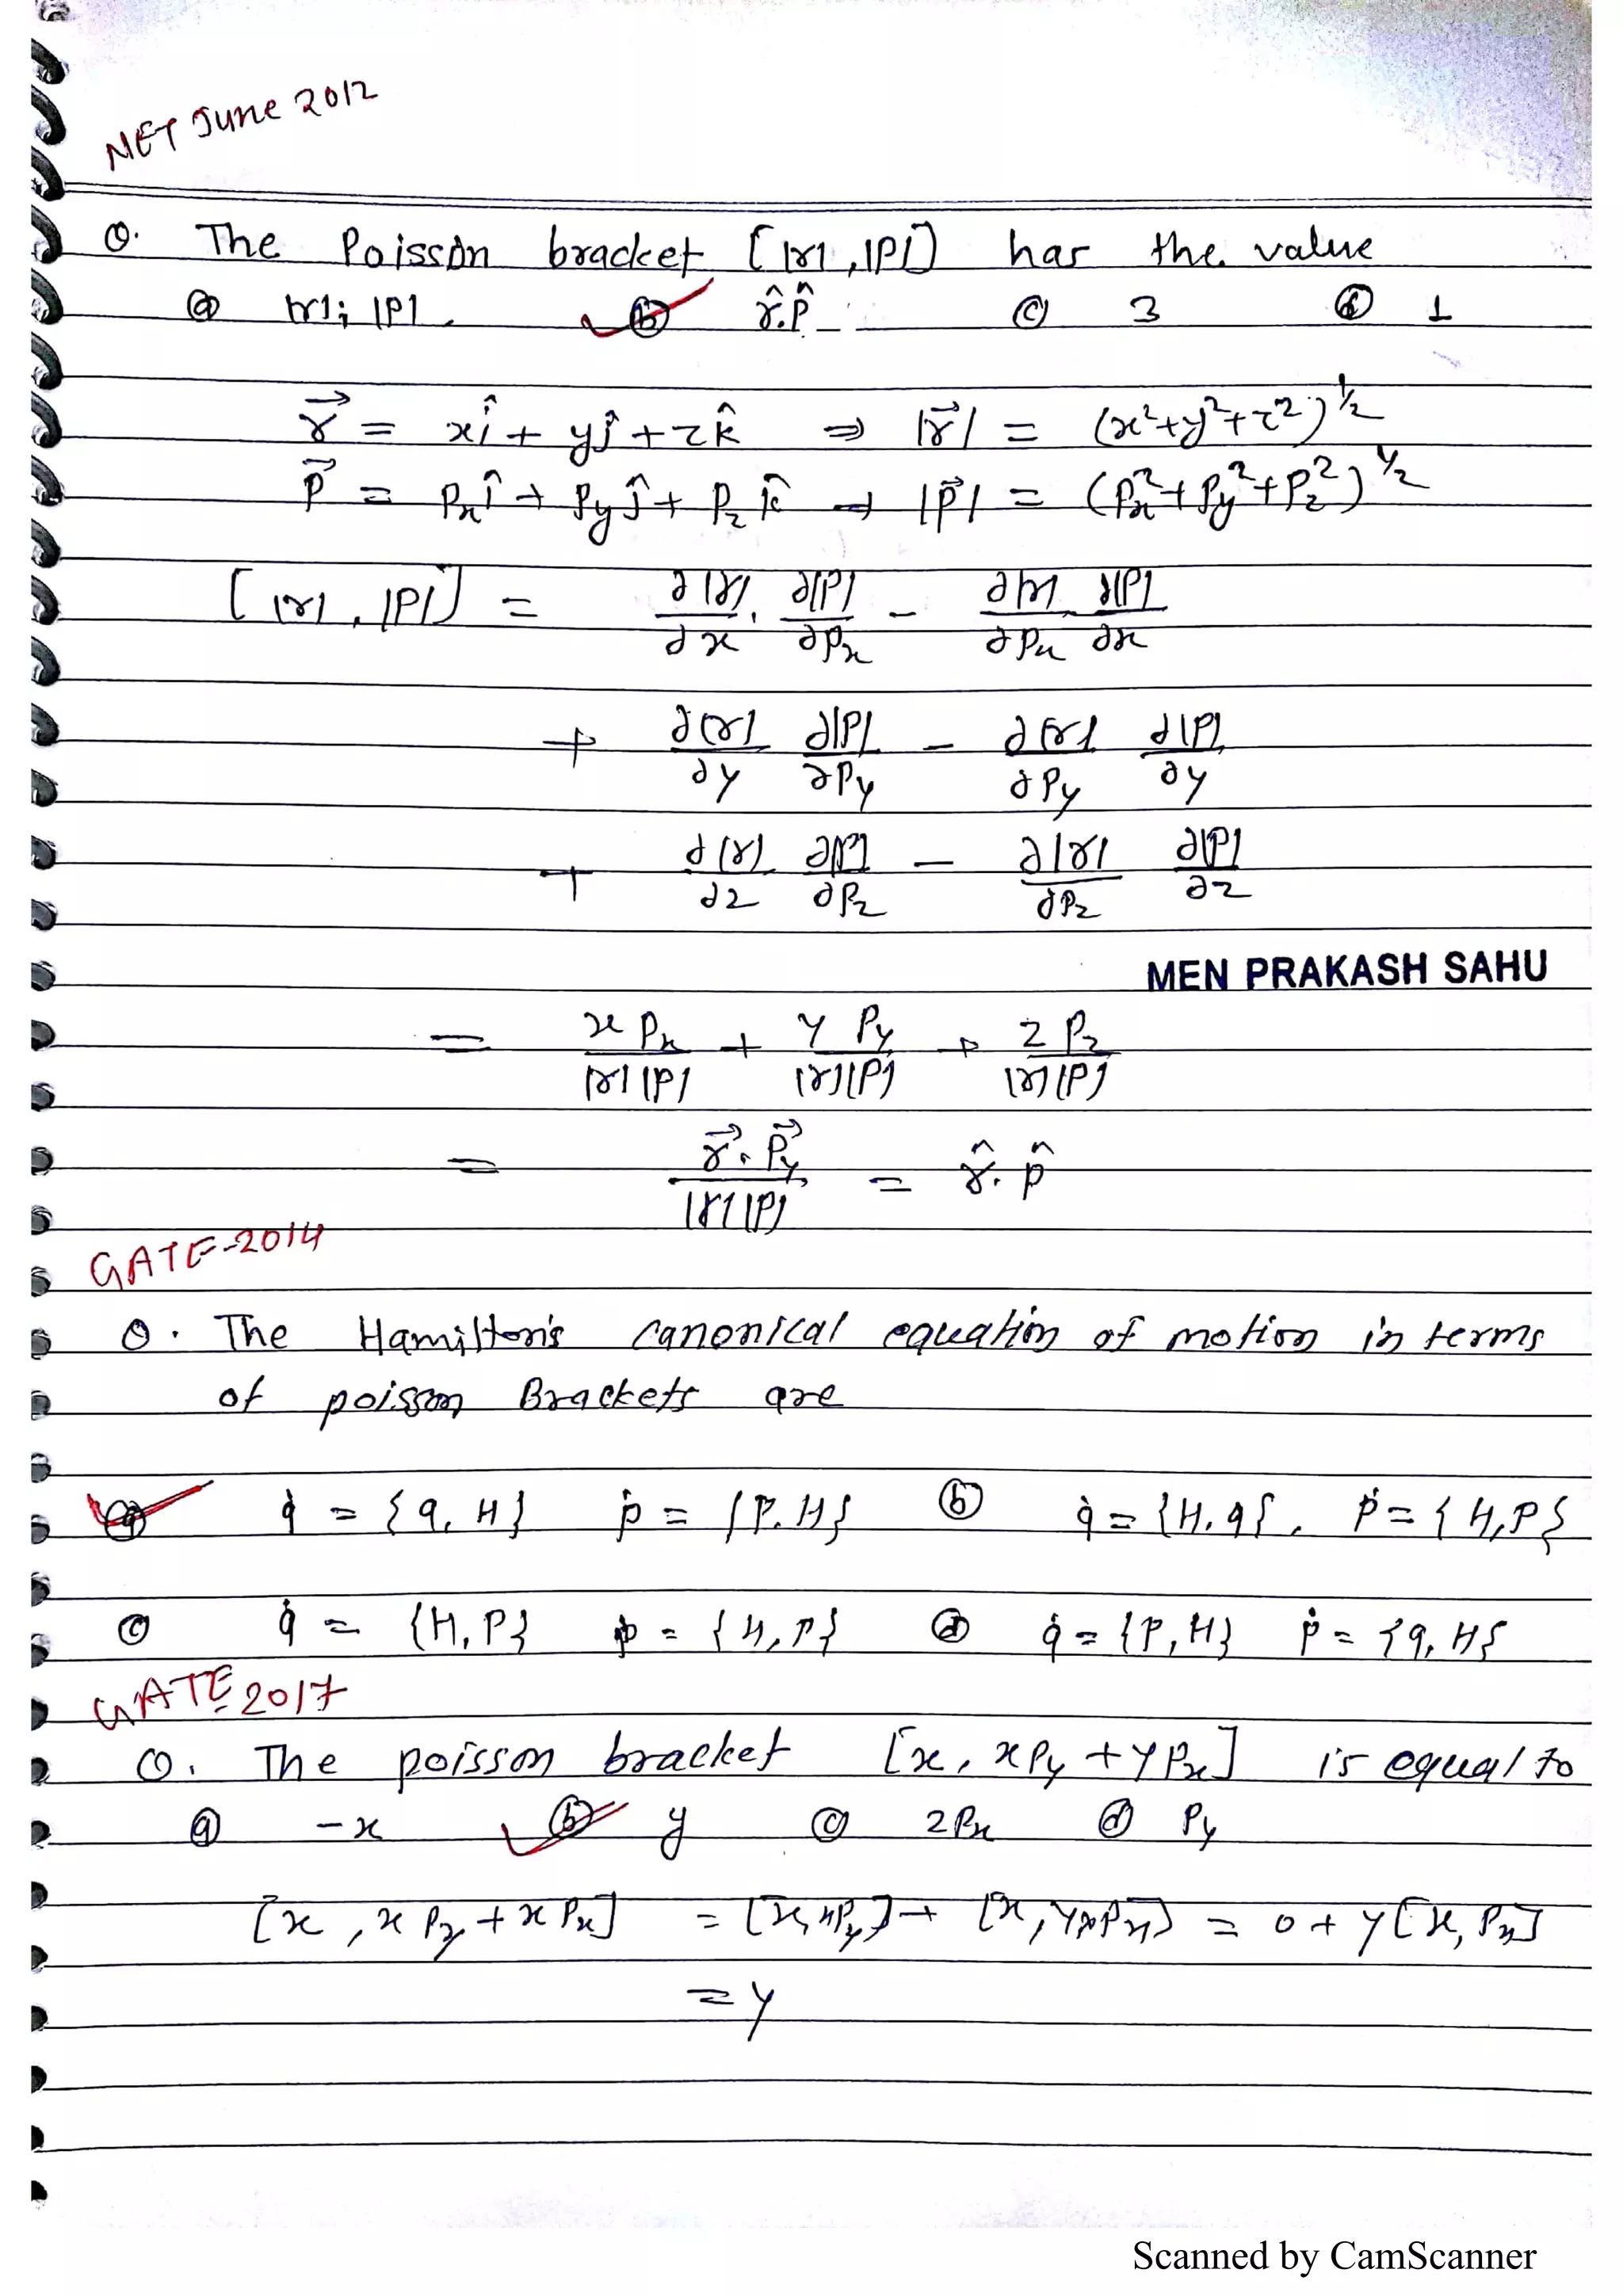 NET June 2012
Q. The Poisson bracket [|r|, |P|] has the value
ⓐ |r|; |P| ⓑ r̂.p̂ ⓒ 3 ⓓ 1
r⃗ = xî + yĵ + zk̂ ⇒ |r⃗| = (x²+y²+z²)^1/2
P⃗ = Pxî + Pyĵ + Pz k̂ ⇒ |P⃗| = (Px²+Py²+Pz²)^1/2
[|r|, |P|] = ∂|r|/∂x . ∂|P|/∂Px − ∂|r|/∂Px ∂|P|/∂x
+ ∂|r|/∂y ∂|P|/∂Py − ∂|r|/∂Py ∂|P|/∂y
+ ∂|r|/∂z ∂|P|/∂Pz − ∂|r|/∂Pz ∂|P|/∂z
MEN PRAKASH SAHU
= x Px/|r||P| + y Py/|r||P| + z Pz/|r||P|
= r⃗. P⃗y/|r||P| = r̂. p̂
GATE-2014
Q. The Hamilton's canonical equation of motion in terms
of poisson Brackets are
ⓐ q̇ = {q, H} ṗ = {P, H} ⓑ q̇ = {H, q}, Ṗ = {H, P}
ⓒ q̇ = {H, P} ṗ = {H, P} ⓓ q̇ = {P, H} ṗ = {q, H}
GATE 2017
Q. The poisson bracket [x, xPy + yPx] is equal to
ⓐ −x ⓑ y ⓒ 2Px ⓓ Py
[x, x Py + x Px] = [x, xPy] + [x, Px] = 0 + y[x, Px]
= y
Scanned by CamScanner